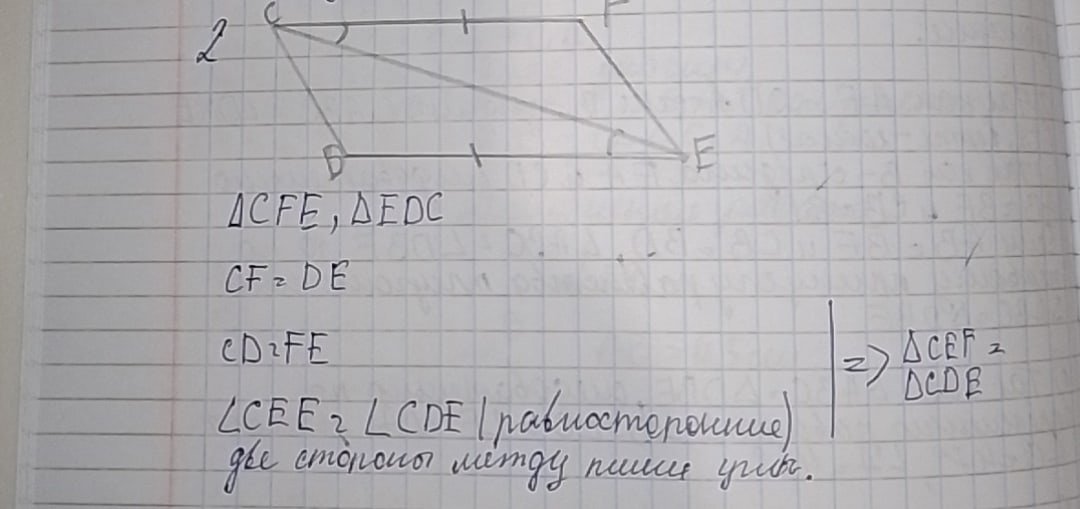 2
C F
D E
ΔCFE, ΔEDC
CF = DE
CD = FE
∠CEE = ∠CDE (равносторонние)
две стороны между ними углы.
=> ΔCEF =
ΔCDE